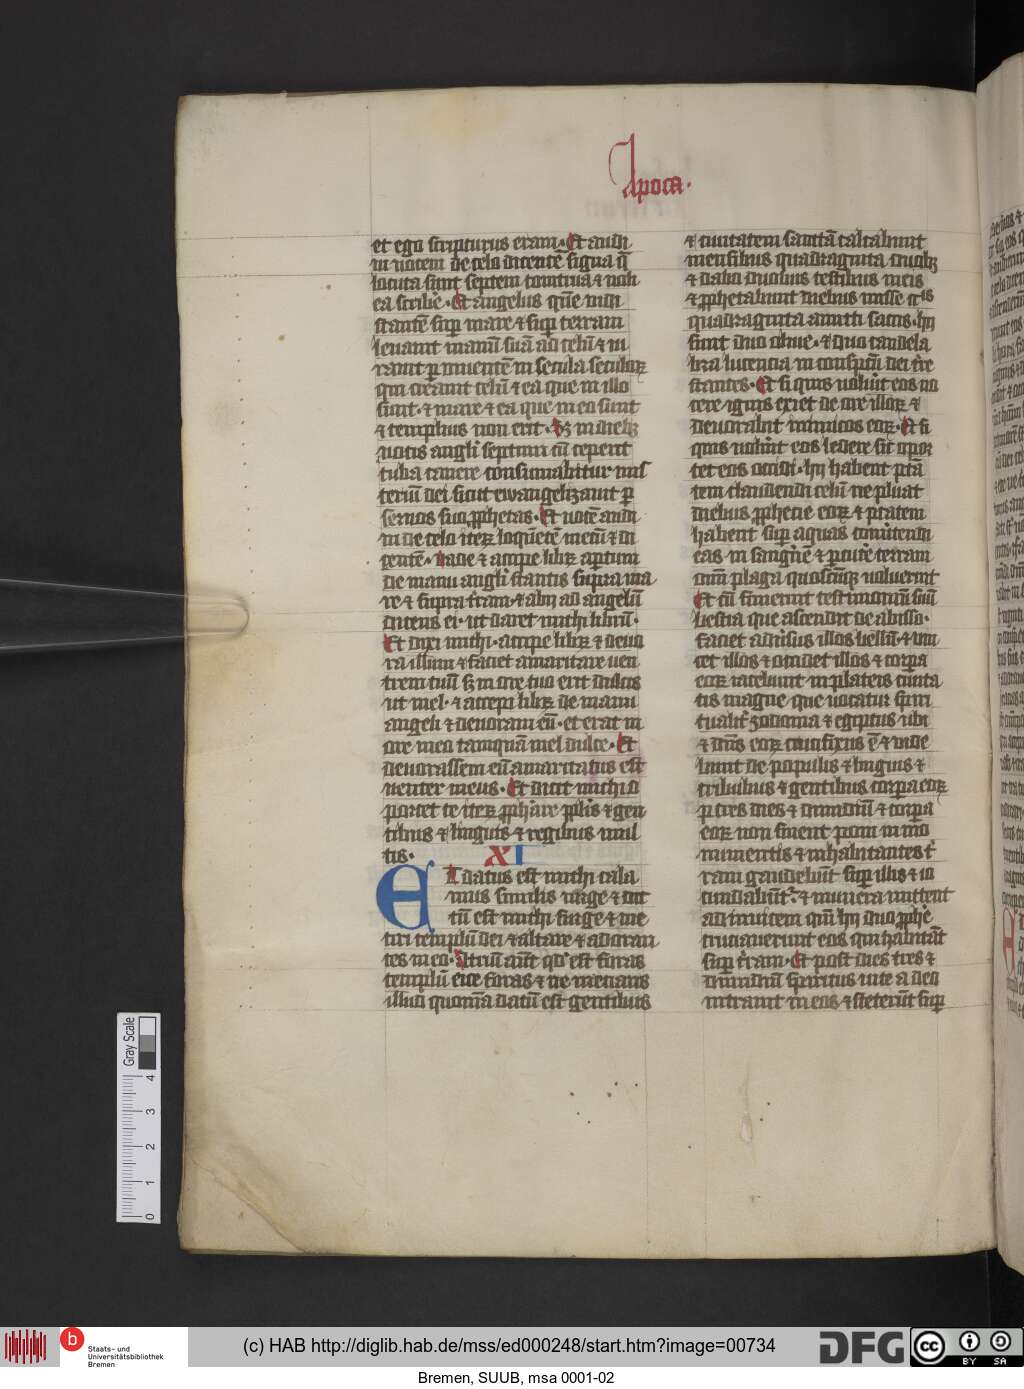 Apoca.
et ego scripturus eram. Et audi
ui vocem de celo dicentē signa q̄
locuta sunt septem tonitrua ⁊ noli
ea scribe. Et angelus quē uidi
stantē sup mare ⁊ sup terram
leuauit manū suā ad celū ⁊ iu
rauit p uiuentē in secula seculoꝝ
qui creauit celū ⁊ ea que in illo
sunt. ⁊ mare ⁊ ea que in eo sunt
⁊ tempus non erit. Sꝫ in diebꝫ
uocis angli septimi cū ceperit
tuba canere consumabitur mis
teriū dei sicut ewangelizauit p
seruos suos ꝓphetas. Et uocē audi
ui de celo iteꝝ loquētē mecū ⁊ di
centē. Uade ⁊ accipe libꝝ aptum
de manu angli stantis supra ma
re ⁊ supra t̄ram. ⁊ abij ad angelū
dicens ei. ut daret michi librū.
Et dixi michi. accipe libꝝ ⁊ deuo
ra illum ⁊ faciet amaritare uen
trem tuū sꝫ in ore tuo erit dulcis
ut mel. ⁊ accepi libꝝ de manu
angeli ⁊ deuoraui eū. et erat in
ore meo tamquā mel dulce. Et
deuorassem eū amaricatus est
uenter meus. Et dicit michi o
portet te iteꝝ ꝓphare pplis ⁊ gen
tibus ⁊ linguis ⁊ regibus mul
tis. XI
Et datus est michi cala
mus similis uirge ⁊ dic
tū est michi surge ⁊ me
tiri templū dei ⁊ altare ⁊ adoran
tes in eo. Atriū aūt qd est foras
templū eice foras ⁊ ne mecians
illud quoniā datū est gentibus
⁊ ciuitatem sanctā calcabunt
mensibus quadraginta duobꝫ
⁊ dabo duobus testibus meis
⁊ ꝓphetabunt diebus mille
quadraginta amicti saccis. hij
sunt duo oliue. ⁊ duo candela
bra lucencia in conspcū dei tr̄e
stantes. Et si quis uolūit eos no
cere ignis exiet de ore illoꝝ ⁊
deuorabit inimicos eoꝝ. Et si
quis uolūit eos ledere sic opor
tet eos occidi. hij habent ptā
tem claudendi celū ne pluat
diebus ꝓphecie eoꝝ ⁊ ptatem
habent sup aquas conūtendi
eas in sanguīe ⁊ pcutē terram
omī plaga quosciꝫ uoluerint
Et cū finierint testimoniū suū
bestia que ascendit de abisso.
faciet aduīsus illos bellū. ⁊ uin
cet illos ⁊ occidet illos ⁊ corpa
eoꝝ iacebunt in plateis ciuita
tis magne que uocatur spiri
tualit̄ zodoma ⁊ egiptus ubi
⁊ dn̄s eoꝝ crucifixus ē ⁊ uide
bunt de populis ⁊ linguis ⁊
tribubus ⁊ gentibus corpa eoꝝ
p tres dies ⁊ dimidiū ⁊ corpa
eoꝝ non sinent poni in mo
numentis ⁊ inhabitantes t̄
ram gaudebūt sup illis ⁊ io
cundabūt. ⁊ munera mittent
ad inuicem qm̄ hij duo ꝓphē
cruciauerunt eos qui habitāt
sup t̄ram. Et post dies tres ⁊
dimidiū spiritus uite a deo
intrauit in eos ⁊ steterūt sup
Gray Scale
0 1 2 3 4
b
Staats- und
Universitätsbibliothek
Bremen
(c) HAB http://diglib.hab.de/mss/ed000248/start.htm?image=00734
DFG
cc BY SA
Bremen, SUUB, msa 0001-02